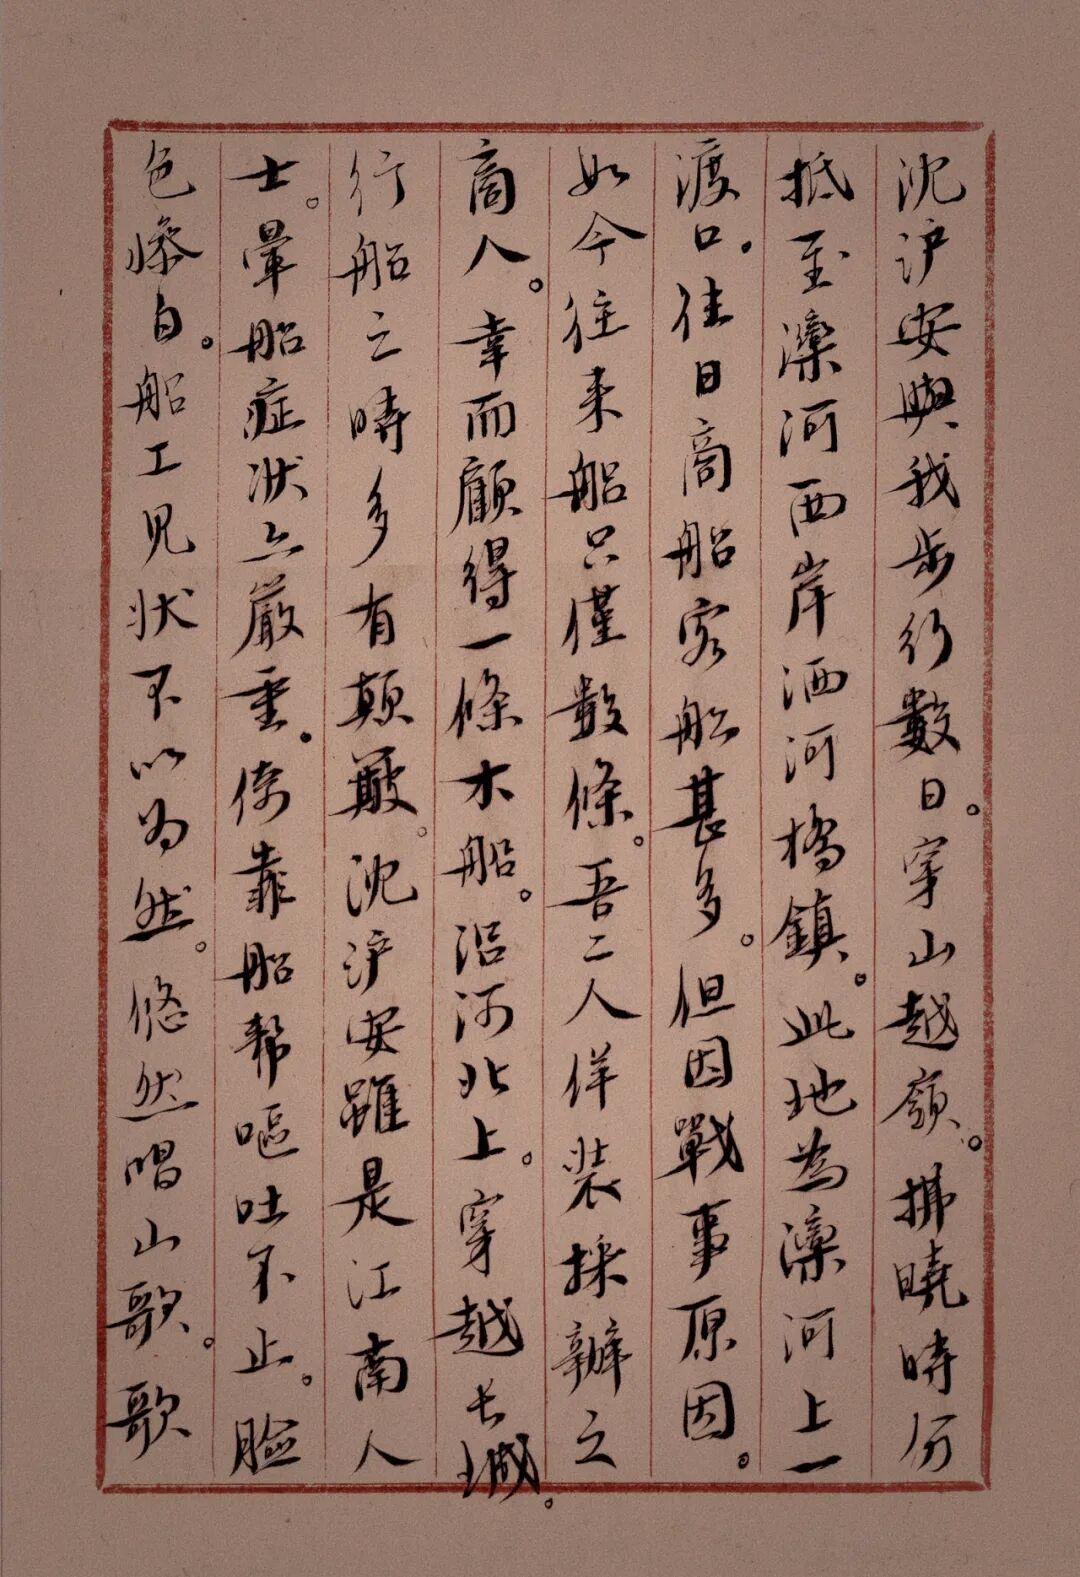 沈沪安與我步行數日。穿山越嶺。拂曉時分
抵至灤河西岸洒河橋鎮。此地為灤河上一
渡口。往日商船客船甚多。但因戰事原因。
如今往来船只僅數條。吾二人佯装採辦之
商人。幸而顧得一條木船。沿河北上。穿越长城。
行船之時多有顛簸。沈沪安雖是江南人
士。暈船症状亦嚴重。倚靠船帮嘔吐不止。臉
色慘白。船工见状不以为然。悠然唱山歌。歌